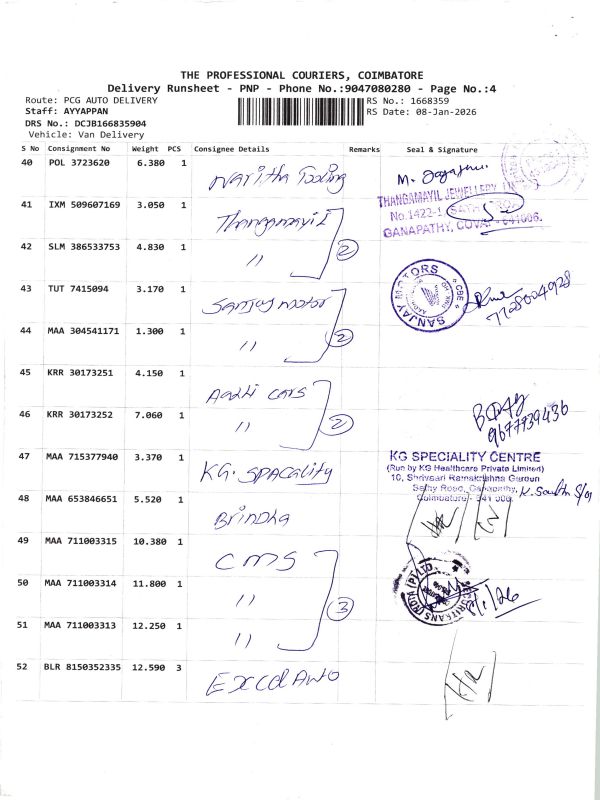 THE PROFESSIONAL COURIERS, COIMBATORE
Delivery Runsheet - PNP - Phone No.:9047080280 - Page No.:4
Route: PCG AUTO DELIVERY
RS No.: 1668359
Staff: AYYAPPAN
RS Date: 08-Jan-2026
DRS No.: DCJB166835904
Vehicle: Van Delivery
S No Consignment No Weight PCS Consignee Details Remarks Seal & Signature
40 POL 3723620 6.380 1 Haritha Tooling
41 IXM 509667169 3.050 1 Thangamayil
THANGAMAYIL JEWELLERY
No.1422-1, SATHY ROAD
GANAPATHY, COVAI - 641006.
42 SLM 386533753 4.830 1 "
2
43 TUT 7415094 3.170 1 Sanjay motor
SANJAY MOTORS CBE
7728004928
44 MAA 304541171 1.300 1 "
2
45 KRR 30173251 4.150 1 Aadhi cars
46 KRR 30173252 7.060 1 "
2
9677739436
47 MAA 715377940 3.370 1 KG. SPACALITY
KG SPECIALITY CENTRE
(Run by KG Healthcare Private Limited)
10, Shrivsari Ramakrishna Garoun
Sathy Road, Ganapathy,
Coimbatore - 641 006.
48 MAA 653846651 5.520 1 Brindha
49 MAA 711003315 10.380 1 CMS
50 MAA 711003314 11.800 1 "
3
8/1/26
51 MAA 711003313 12.250 1 "
52 BLR 8150352335 12.590 3 Excel Auto